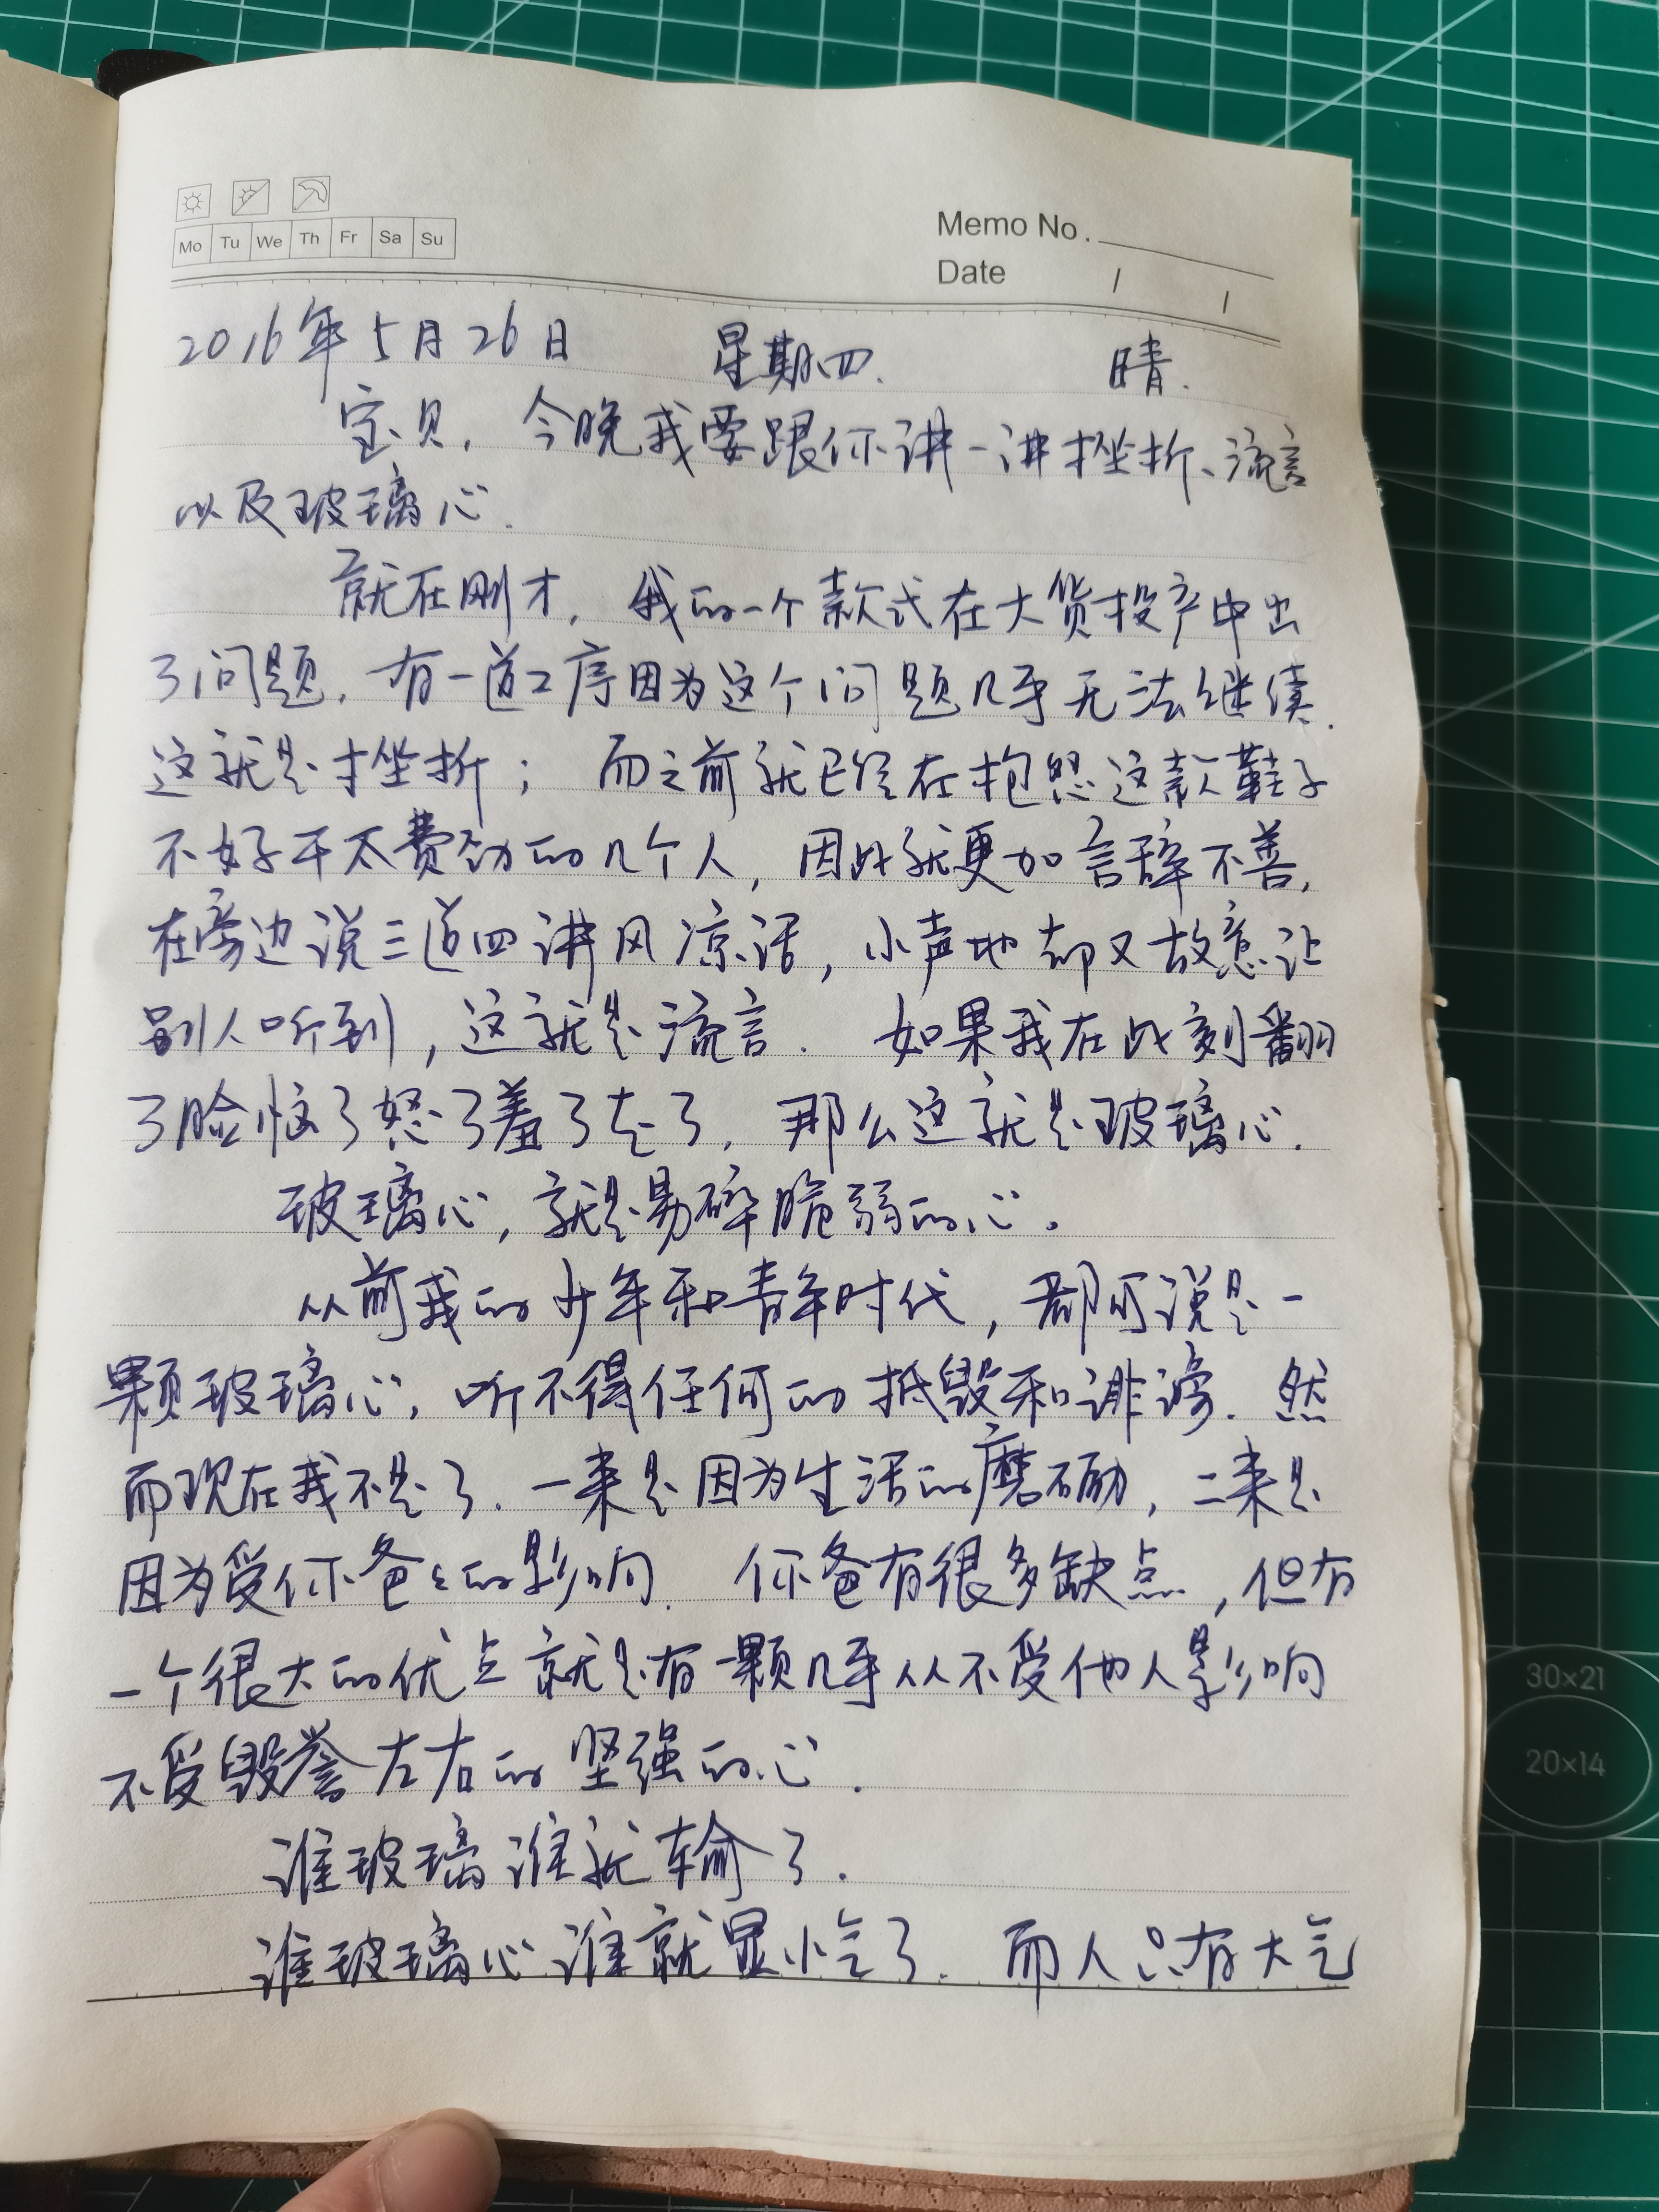 Mo Tu We Th Fr Sa Su
Memo No.
Date / /
2016年5月26日 星期四. 晴.
宝贝，今晚我要跟你讲一讲挫折、流言
以及玻璃心.
就在刚才，我的一个款式在大货投产中出
了问题，有一道工序因为这个问题几乎无法继续.
这就是挫折；而之前就已经在抱怨这款鞋子
不好干太费劲的几个人，因此就更加言辞不善，
在旁边说三道四讲风凉话，小声地却又故意让
别人听到，这就是流言. 如果我在此刻翻
了脸恼了怒了羞了走了，那么这就是玻璃心.
玻璃心，就是易碎脆弱的心。
从前我的少年和青年时代，都可说是一
颗玻璃心，听不得任何的抵毁和诽谤. 然
而现在我不是了. 一来是因为生活的磨砺，二来是
因为受你爸爸的影响. 你爸有很多缺点，但有
一个很大的优点就是有一颗几乎从不受他人影响
不受毁誉左右的坚强的心.
谁玻璃谁就输了.
谁玻璃心谁就显小气了. 而人只有大气
30×21
20×14